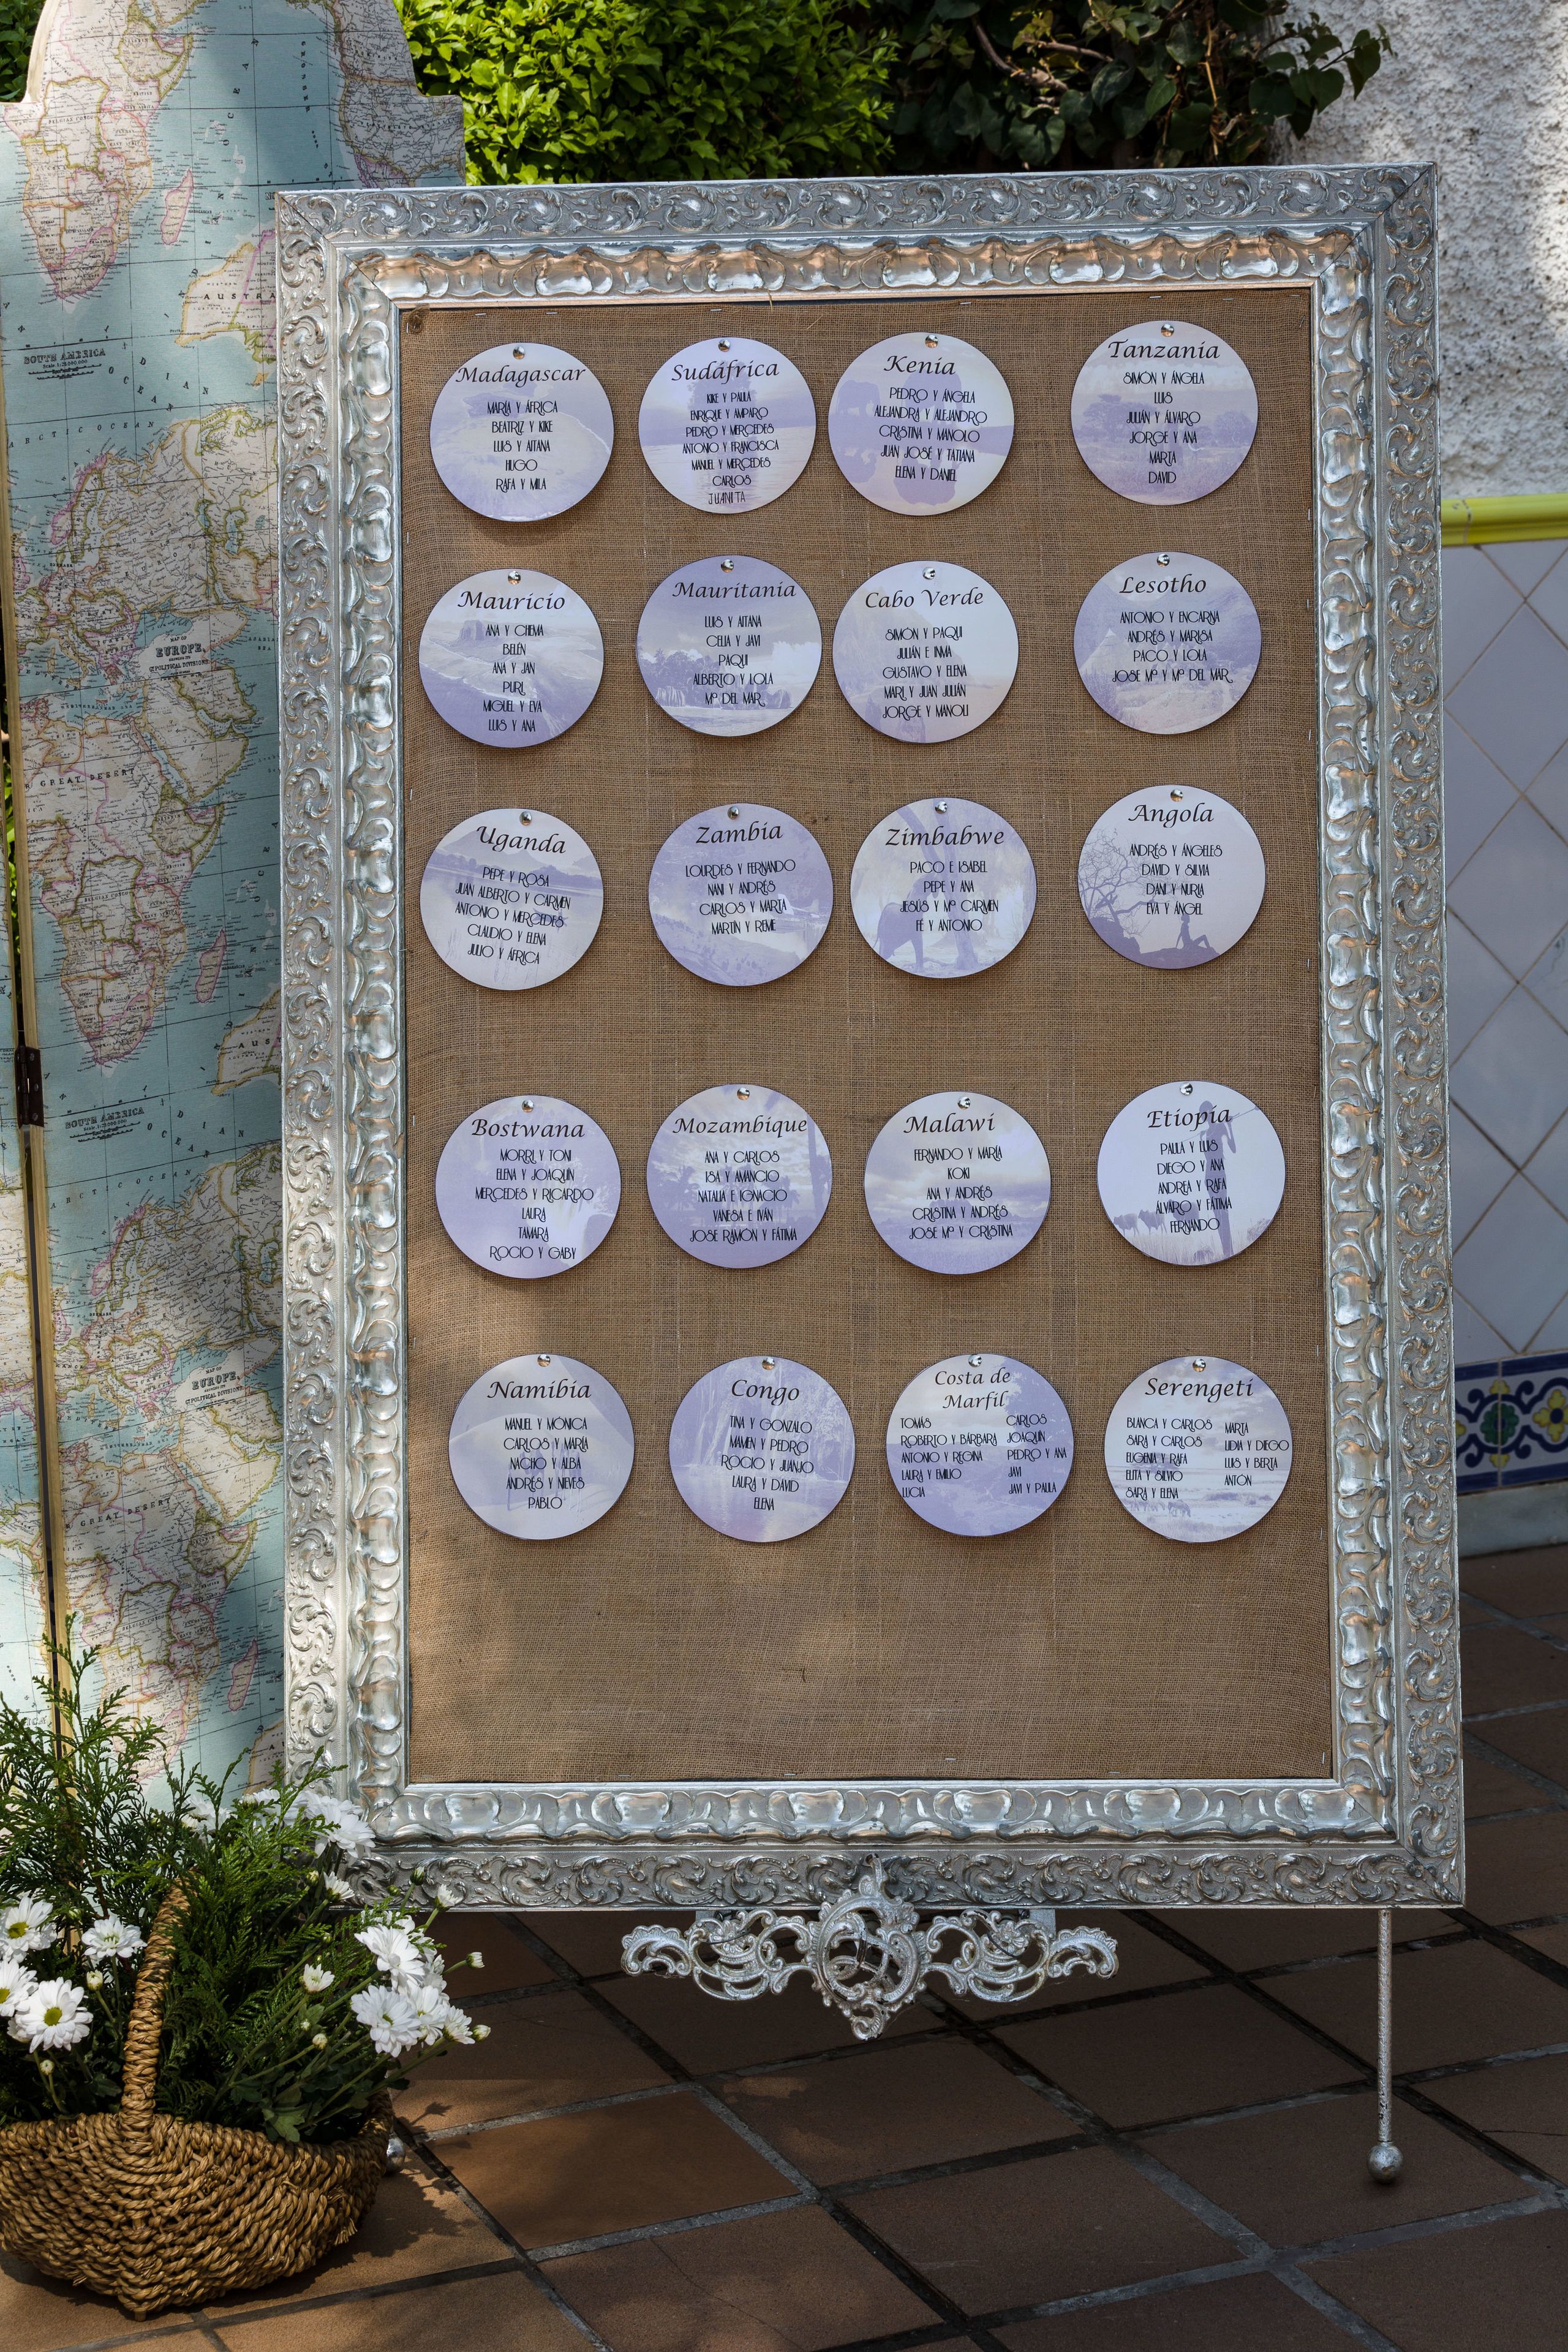 Madagascar
MARÍA Y ÁFRICA
BEATRIZ Y KIKE
LUIS Y AITANA
HUGO
RAFA Y MILA
Sudáfrica
KIKE Y PAULA
ENRIQUE Y AMPARO
PEDRO Y MERCEDES
ANTONIO Y FRANCISCA
MANUEL Y MERCEDES
CARLOS
JUANITA
Kenia
PEDRO Y ÁNGELA
ALEJANDRA Y ALEJANDRO
CRISTINA Y MANOLO
JUAN JOSÉ Y TATIANA
ELENA Y DANIEL
Tanzania
SIMÓN Y ÁNGELA
LUIS
JULIÁN Y ÁLVARO
JORGE Y ANA
MARTA
DAVID
Mauricio
ANA Y CHEMA
BELÉN
ANA Y JAN
PURI
MIGUEL Y EVA
LUIS Y ANA
Mauritania
LUIS Y AITANA
CELIA Y JAVI
PAQUI
ALBERTO Y LOLA
Mª DEL MAR
Cabo Verde
SIMÓN Y PAQUI
JULIÁN E INMA
GUSTAVO Y ELENA
MARI Y JUAN JULIÁN
JORGE Y MANOLI
Lesotho
ANTONIO Y ENCARNA
ANDRÉS Y MARISA
PACO Y LOLA
JOSE Mª Y Mª DEL MAR
Uganda
PEPE Y ROSA
JUAN ALBERTO Y CARMEN
ANTONIO Y MERCEDES
CLAUDIO Y ELENA
JULIO Y ÁFRICA
Zambia
LOURDES Y FERNANDO
NANI Y ANDRÉS
CARLOS Y MARTA
MARTÍN Y REME
Zimbabwe
PACO E ISABEL
PEPE Y ANA
JESÚS Y Mª CARMEN
FÉ Y ANTONIO
Angola
ANDRÉS Y ÁNGELES
DAVID Y SILVIA
DANI Y NURIA
EVA Y ÁNGEL
Bostwana
MORRI Y TONI
ELENA Y JOAQUÍN
MERCEDES Y RICARDO
LAURA
TAMARA
ROCÍO Y GABY
Mozambique
ANA Y CARLOS
ISA Y AMANCIO
NATALIA E IGNACIO
VANESA E IVÁN
JOSE RAMÓN Y FÁTIMA
Malawi
FERNANDO Y MARÍA
KOKI
ANA Y ANDRÉS
CRISTINA Y ANDRÉS
JOSE Mª Y CRISTINA
Etiopia
PAULA Y LUIS
DIEGO Y ANA
ANDREA Y RAFA
ÁLVARO Y FÁTIMA
FERNANDO
Namibia
MANUEL Y MÓNICA
CARLOS Y MARÍA
NACHO Y ALBA
ANDRÉS Y NIEVES
PABLO
Congo
TINA Y GONZALO
MAMEN Y PEDRO
ROCÍO Y JUANJO
LAURA Y DAVID
ELENA
Costa de
Marfil
TOMÁS
ROBERTO Y BÁRBARA
ANTONIO Y REGINA
LAURA Y EMILIO
LUCÍA
CARLOS
JOAQUÍN
PEDRO Y ANA
JAVI
JAVI Y PAULA
Serengeti
BLANCA Y CARLOS
SARA Y CARLOS
EUGENIA Y RAFA
ELITA Y SILVIO
SARA Y ELENA
MARTA
LIDIA Y DIEGO
LUIS Y BERTA
ANTON
SOUTH AMERICA
ARCTIC OCEAN
MAP OF
EUROPE,
GREAT DESERT
SOUTH AMERICA
ARCTIC OCEAN
MAP OF
EUROPE,
GREAT DESERT